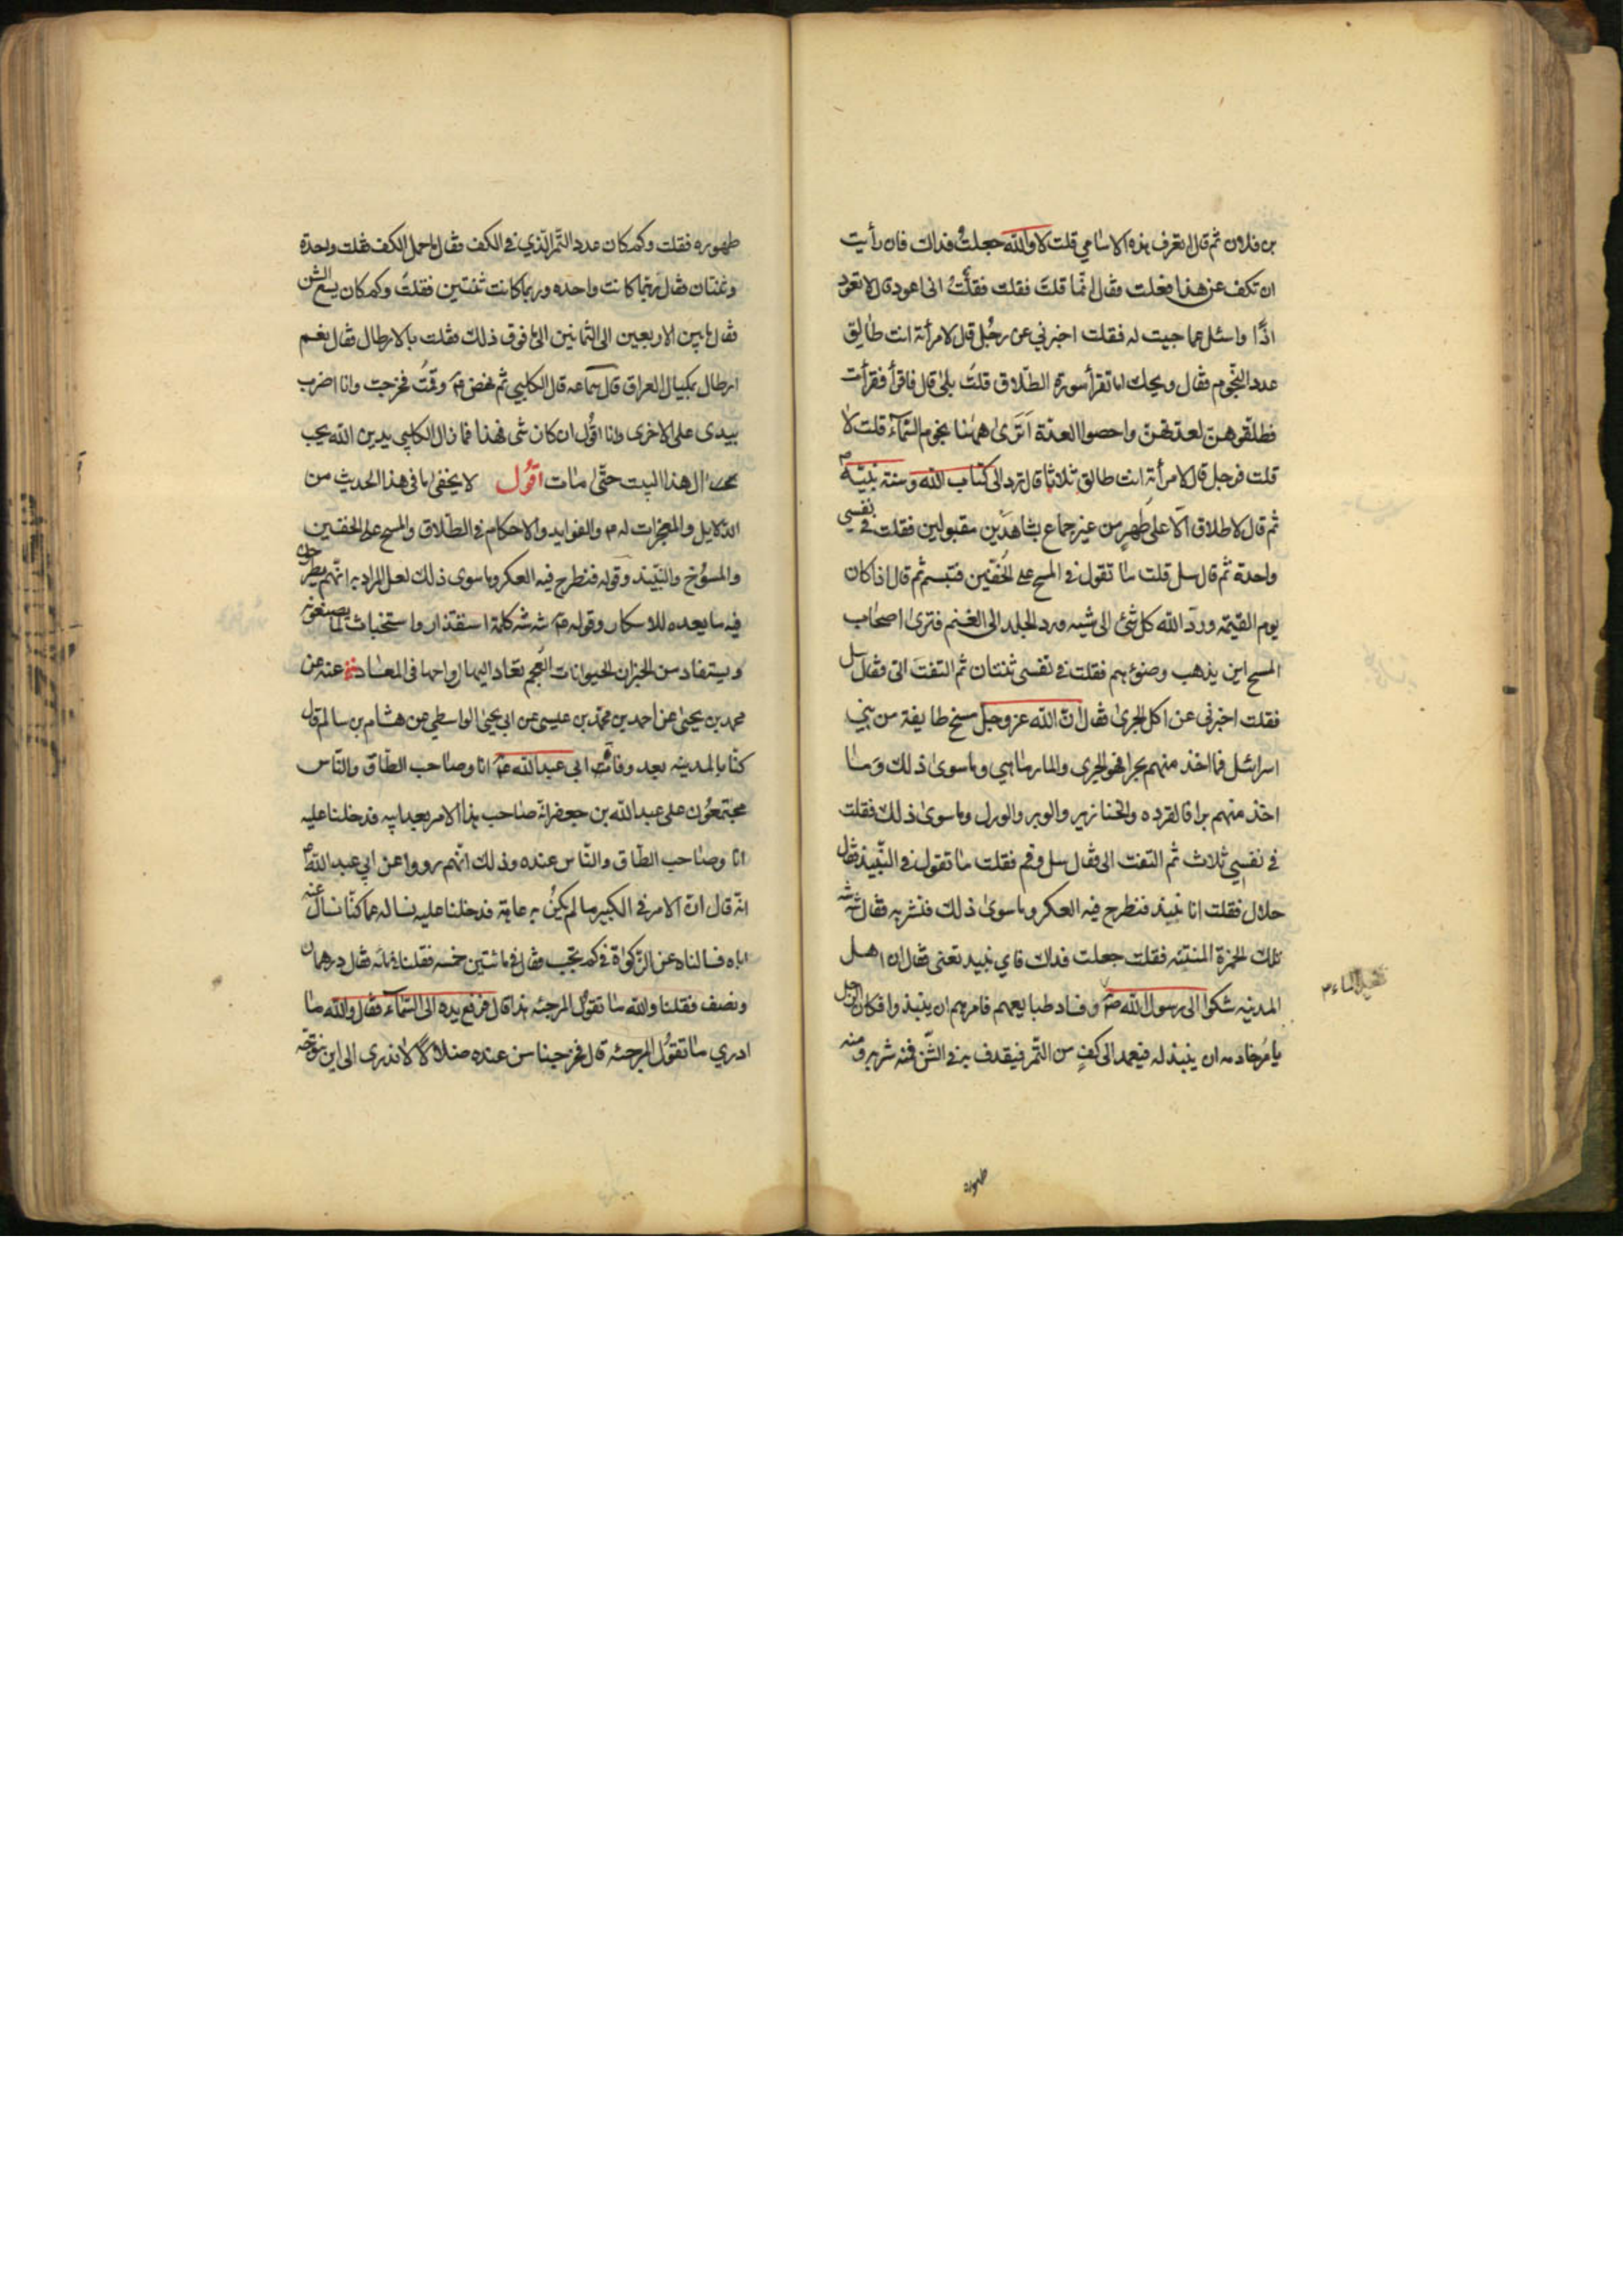 بن فلان ثم قال اتعرف هذه الاسامي قلت لا والله جعلت فداك فان رأيت
ان تكف عن هذا فعلت فقال انما قلت فقلت فقلتُ انى اعود قال لا تعود
اذًا واسئل عما جيت له فقلت اخبرني عن رجُل قال لامرأته انت طالق
عدد النجوم فقال ويحك اما تقرأ سورة الطلاق قلتُ بلى قال فاقرأ فقرأت
فطلقوهن لعدتهن واحصوا العدة اَتَرى ههنا نجوم السّمآء قلت لا
قلت فرجل قال لامرأته انت طالق ثلاثا قال ترد الى كتاب الله وسنة نبيّه
ثم قال لا طلاق الّا على طُهرٍ من غير جماع بشاهدَين مقبولين فقلت في نفسي
واحدة ثم قال سل قلت ما تقول في المسح على الخفّين فتبسم ثم قال اذا كان
يوم القيمة وردّ الله كل شئ الى شيه ورد الجلد الى الغنم فترى اصحاب
المسح اين يذهب وضوئهم فقلت في نفسى ثنتان ثم التفت الىّ فقال سل
فقلت اخبرني عن اكل الجرى فقال انّ الله عز وجل مسخ طايفة من بني
اسرائيل فما اخذ منهم بحرا فهو الجرى والمارماهي وما سوى ذلك وما
اخذ منهم برا فالقرده والخنازير والوبر والورل وما سوى ذلك فقلت
في نفسي ثلاث ثم التفت الى فقال سل وقم فقلت ما تقول في النّبيذ فقال
حلال فقلت انا ننبذ فنطرح فيه العكر وما سوى ذلك فنشربه فقال شه شه
تلك الخمرة المنتنه فقلت جعلت فداك فاي نبيذ تعنى فقال ان اهل
المدينه شكوا الى رسول الله ص وفساد طبايعهم فامرهم ان ينبذوا فكان الرجل
يأمُر خادمه ان ينبذ له فيعمد الى كفٍ من التّمر فيقذف به في الشّن فمنه شربه ومنه
تغيير الماء
طهوره
طهوره فقلت وكم كان عدد التّمر الّذي في الكف فقال ما حمل الكف فقلت واحدة
وثنتان فقال ربّما كانت واحده وربما كانت ثنتين فقلتُ وكم كان يسع الشن
فقال ما بين الاربعين الى الثمانين الى ما فوق ذلك فقلت بالارطال فقال نعم
ارطال بمكيال العراق قال سماعه قال الكلبي ثم نهض ع وقمتُ فخرجت وانا اضرب
بيدى على الاخرى وانا اقُول ان كان شى فهذا فما زال الكلبي يدين الله بحب
آل هذا البيت حتّى مات اقُول لا يخفى ما في هذا الحديث من
الدّلايل والمعجزات له ع والفوايد والاحكام في الطّلاق والمسح على الخفين
والمسُوخ والنّبيذ وقوله فنطرح فيه العكر وما سوى ذلك لعل المراد به انّهم يطرحون
فيه ما يعده للاسكار وقوله ع شه شه كلمة استقذار واستخباث لما يصنعونه
ويستفاد من الخبر ان الحيوانات العُجم تعاد اليها ارواحها في المعاد عنه عن
محمد بن يحيى عن احمد بن محمّد بن عيسى عن ابى يحيى الواسطى عن هشام بن سالم قال
كنّا بالمدينه بعد وفات ابى عبد الله ع انا وصاحب الطّاق والنّاس
مجتمعُون على عبد الله بن جعفر انه صاحب هذا الامر بعد ابيه فدخلنا عليه
انا وصاحب الطّاق والنّاس عنده وذلك انّهم رووا عن ابي عبد الله ع
انّه قال ان الامر في الكبير ما لم يكن به عاهة فدخلنا عليه نساله عما كنّا نسال عنه
اباه فسالناه عن الزّكوة في كم تجب فقال في مائتين خمسه فقلنا ففي مائه فقال درهمان
ونصف فقلنا والله ما تقُول المرجئه هذا قال فرفع يده الى السّمآء فقال والله ما
ادري ما تقُول المرجئه قال فخرجنا من عنده ضلالًا لا ندرى الى اين نتوجّه